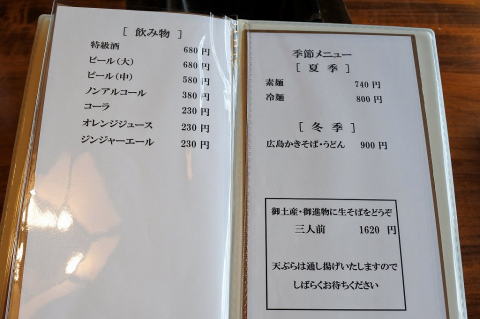 [ 飲み物 ]
特級酒 680 円
ビール(大) 680 円
ビール(中) 580 円
ノンアルコール 380 円
コーラ 230 円
オレンジジュース 230 円
ジンジャーエール 230 円
季節メニュー
[ 夏 季 ]
素麺 740 円
冷麺 800 円
[ 冬 季 ]
広島かきそば・うどん 900 円
御土産・御進物に生そばをどうぞ
三人前 1620 円
天ぷらは通し揚げいたしますので
しばらくお待ちください